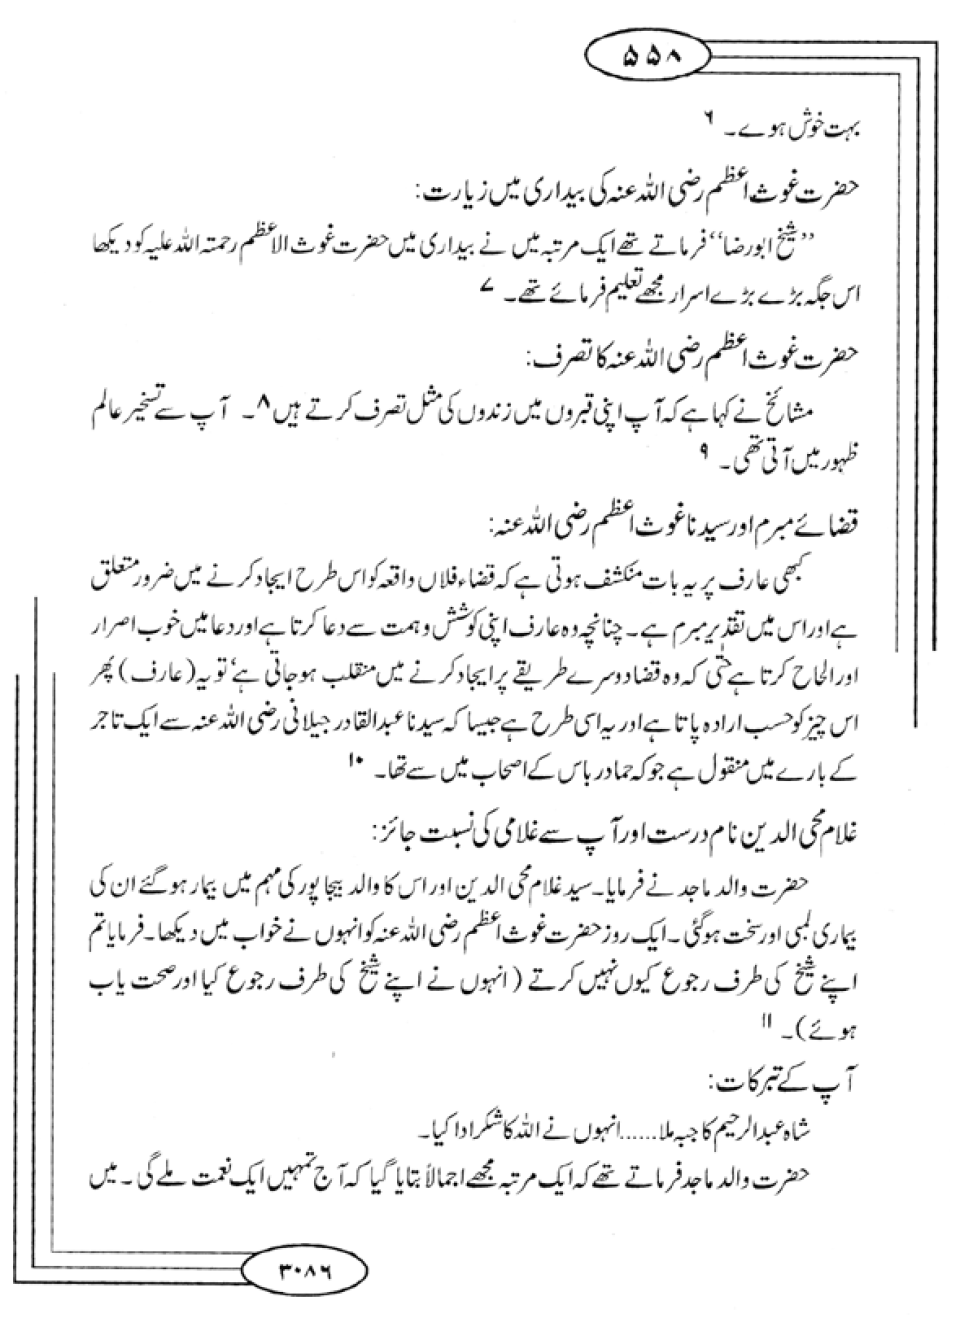 ۵۵۸
بہت خوش ہوے۔ ۶
حضرت غوث اعظم رضی اللہ عنہ کی بیداری میں زیارت:
”شیخ ابو رضا“ فرماتے تھے ایک مرتبہ میں نے بیداری میں حضرت غوث الاعظم رحمتہ اللہ علیہ کو دیکھا
اس جگہ بڑے بڑے اسرار مجھے تعلیم فرمائے تھے۔ ۷
حضرت غوث اعظم رضی اللہ عنہ کا تصرف:
مشائخ نے کہا ہے کہ آپ اپنی قبروں میں زندوں کی مثل تصرف کرتے ہیں ۸۔ آپ سے تسخیر عالم
ظہور میں آتی تھی۔ ۹
قضائے مبرم اور سیدنا غوث اعظم رضی اللہ عنہ:
کبھی عارف پر یہ بات منکشف ہوتی ہے کہ قضاء فلاں واقعہ کو اس طرح ایجاد کرنے میں ضرور متعلق
ہے اور اس میں تقدیر مبرم ہے۔ چنانچہ وہ عارف اپنی کوشش و ہمت سے دعا کرتا ہے اور دعا میں خوب اصرار
اور الحاح کرتا ہے حتٰی کہ وہ قضا دوسرے طریقے پر ایجاد کرنے میں منقلب ہو جاتی ہے‘ تو یہ (عارف) پھر
اس چیز کو حسب ارادہ پاتا ہے اور یہ اسی طرح ہے جیسا کہ سیدنا عبدالقادر جیلانی رضی اللہ عنہ سے ایک تاجر
کے بارے میں منقول ہے جو کہ حماد رباس کے اصحاب میں سے تھا۔ ۱۰
غلام محی الدین نام درست اور آپ سے غلامی کی نسبت جائز:
حضرت والد ماجد نے فرمایا۔ سید غلام محی الدین اور اس کا والد بیجاپور کی مہم میں بیمار ہو گئے ان کی
بیماری لمبی اور سخت ہو گئی۔ ایک روز حضرت غوث اعظم رضی اللہ عنہ کو انہوں نے خواب میں دیکھا۔ فرمایا تم
اپنے شیخ کی طرف رجوع کیوں نہیں کرتے (انہوں نے اپنے شیخ کی طرف رجوع کیا اور صحت یاب
ہوئے)۔ ۱۱
آپ کے تبرکات:
شاہ عبدالرحیم کا جبہ ملا......انہوں نے اللہ کا شکر ادا کیا۔
حضرت والد ماجد فرماتے تھے کہ ایک مرتبہ مجھے اجمالاً بتایا گیا کہ آج تمہیں ایک نعمت ملے گی۔ میں
۳۰۸۶